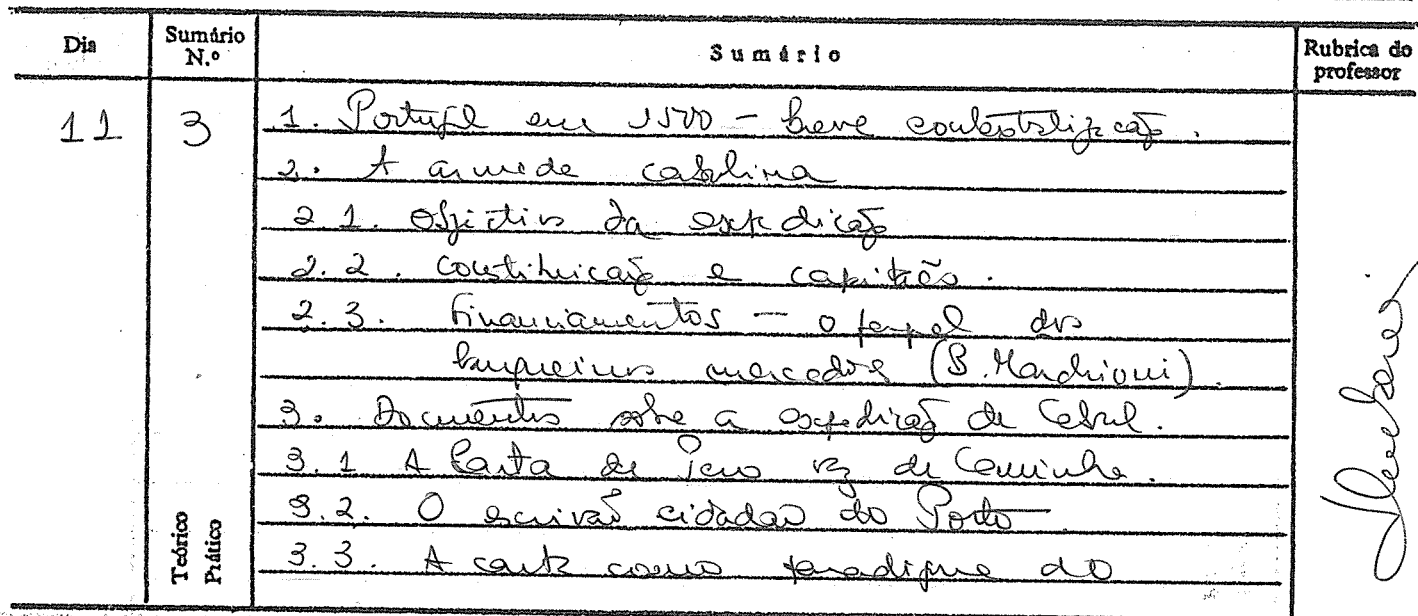 Dia Sumário N.º Sumário Rubrica do professor
11 3 1. Portugal em 1500 – breve contextualização.
2. A armada cabralina
2.1. Objectivos da expedição
2.2. Constituição e capitães.
2.3. Financiamentos – o papel dos
banqueiros mercadores (B. Marchioni).
3. Documentos sobre a expedição de Cabral.
3.1 A Carta de Pero Vz de Caminha.
3.2. O escrivão cidadão do Porto
3.3. A carta como paradigma do
Teórico
Prático